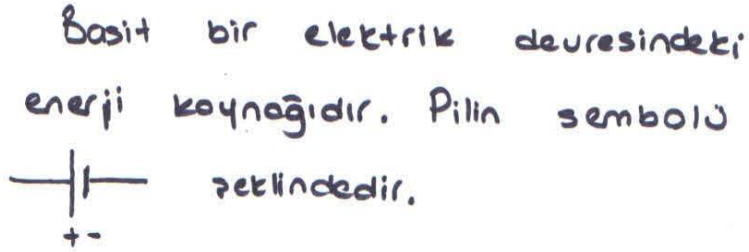 Basit bir elektrik devresindeki
enerji kaynağıdır. Pilin sembolü
şeklindedir.
+ -